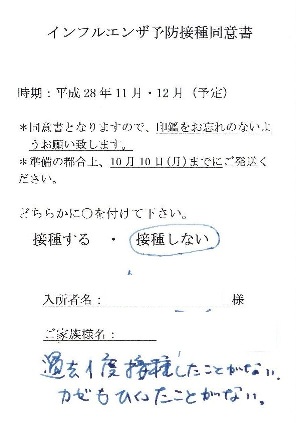 インフルエンザ予防接種同意書
時期：平成28年11月・12月（予定）
＊同意書となりますので、印鑑をお忘れのないよ
うお願い致します。
＊準備の都合上、10月10日(月)までにご発送く
ださい。
どちらかに○を付けて下さい。
接種する ・ 接種しない
入所者名： 様
ご家族様名：
過去1度接種したことがない。
カゼもひいたことがない。